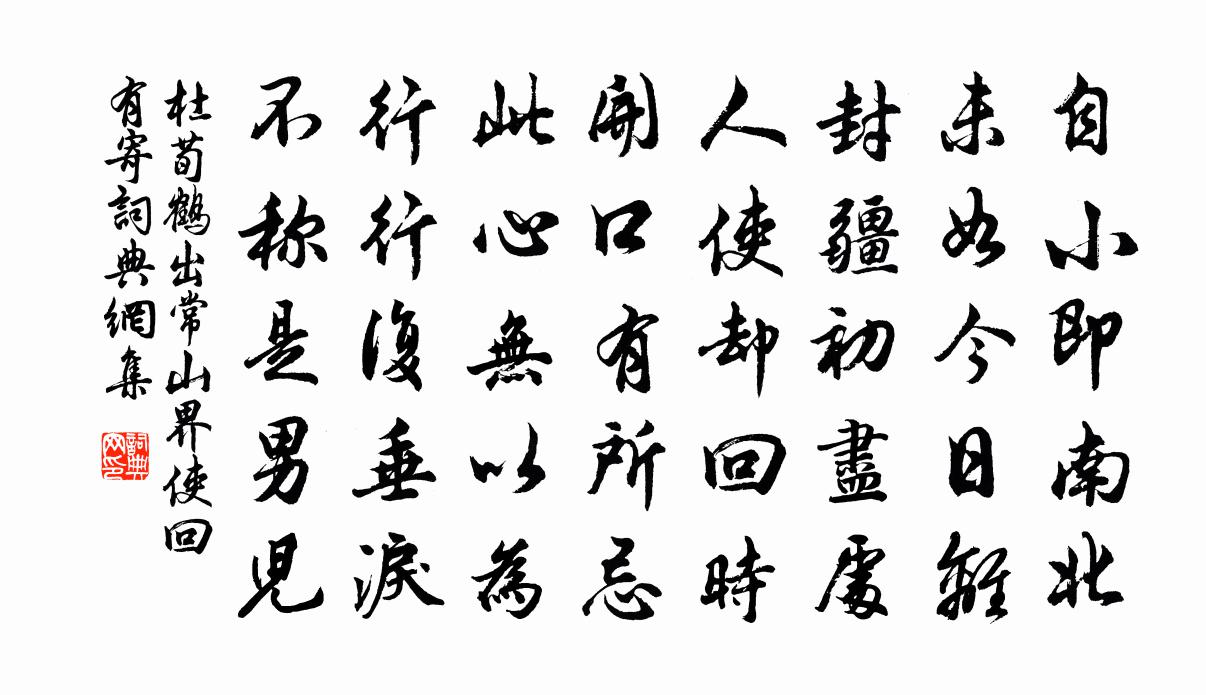 自小即南北
未如今日離
封疆初盡處
人使却回時
開口有所忌
此心無以為
行行復垂淚
不称是男兒
杜荀鶴出常山界使回
有寄詞典網集
詞典網印